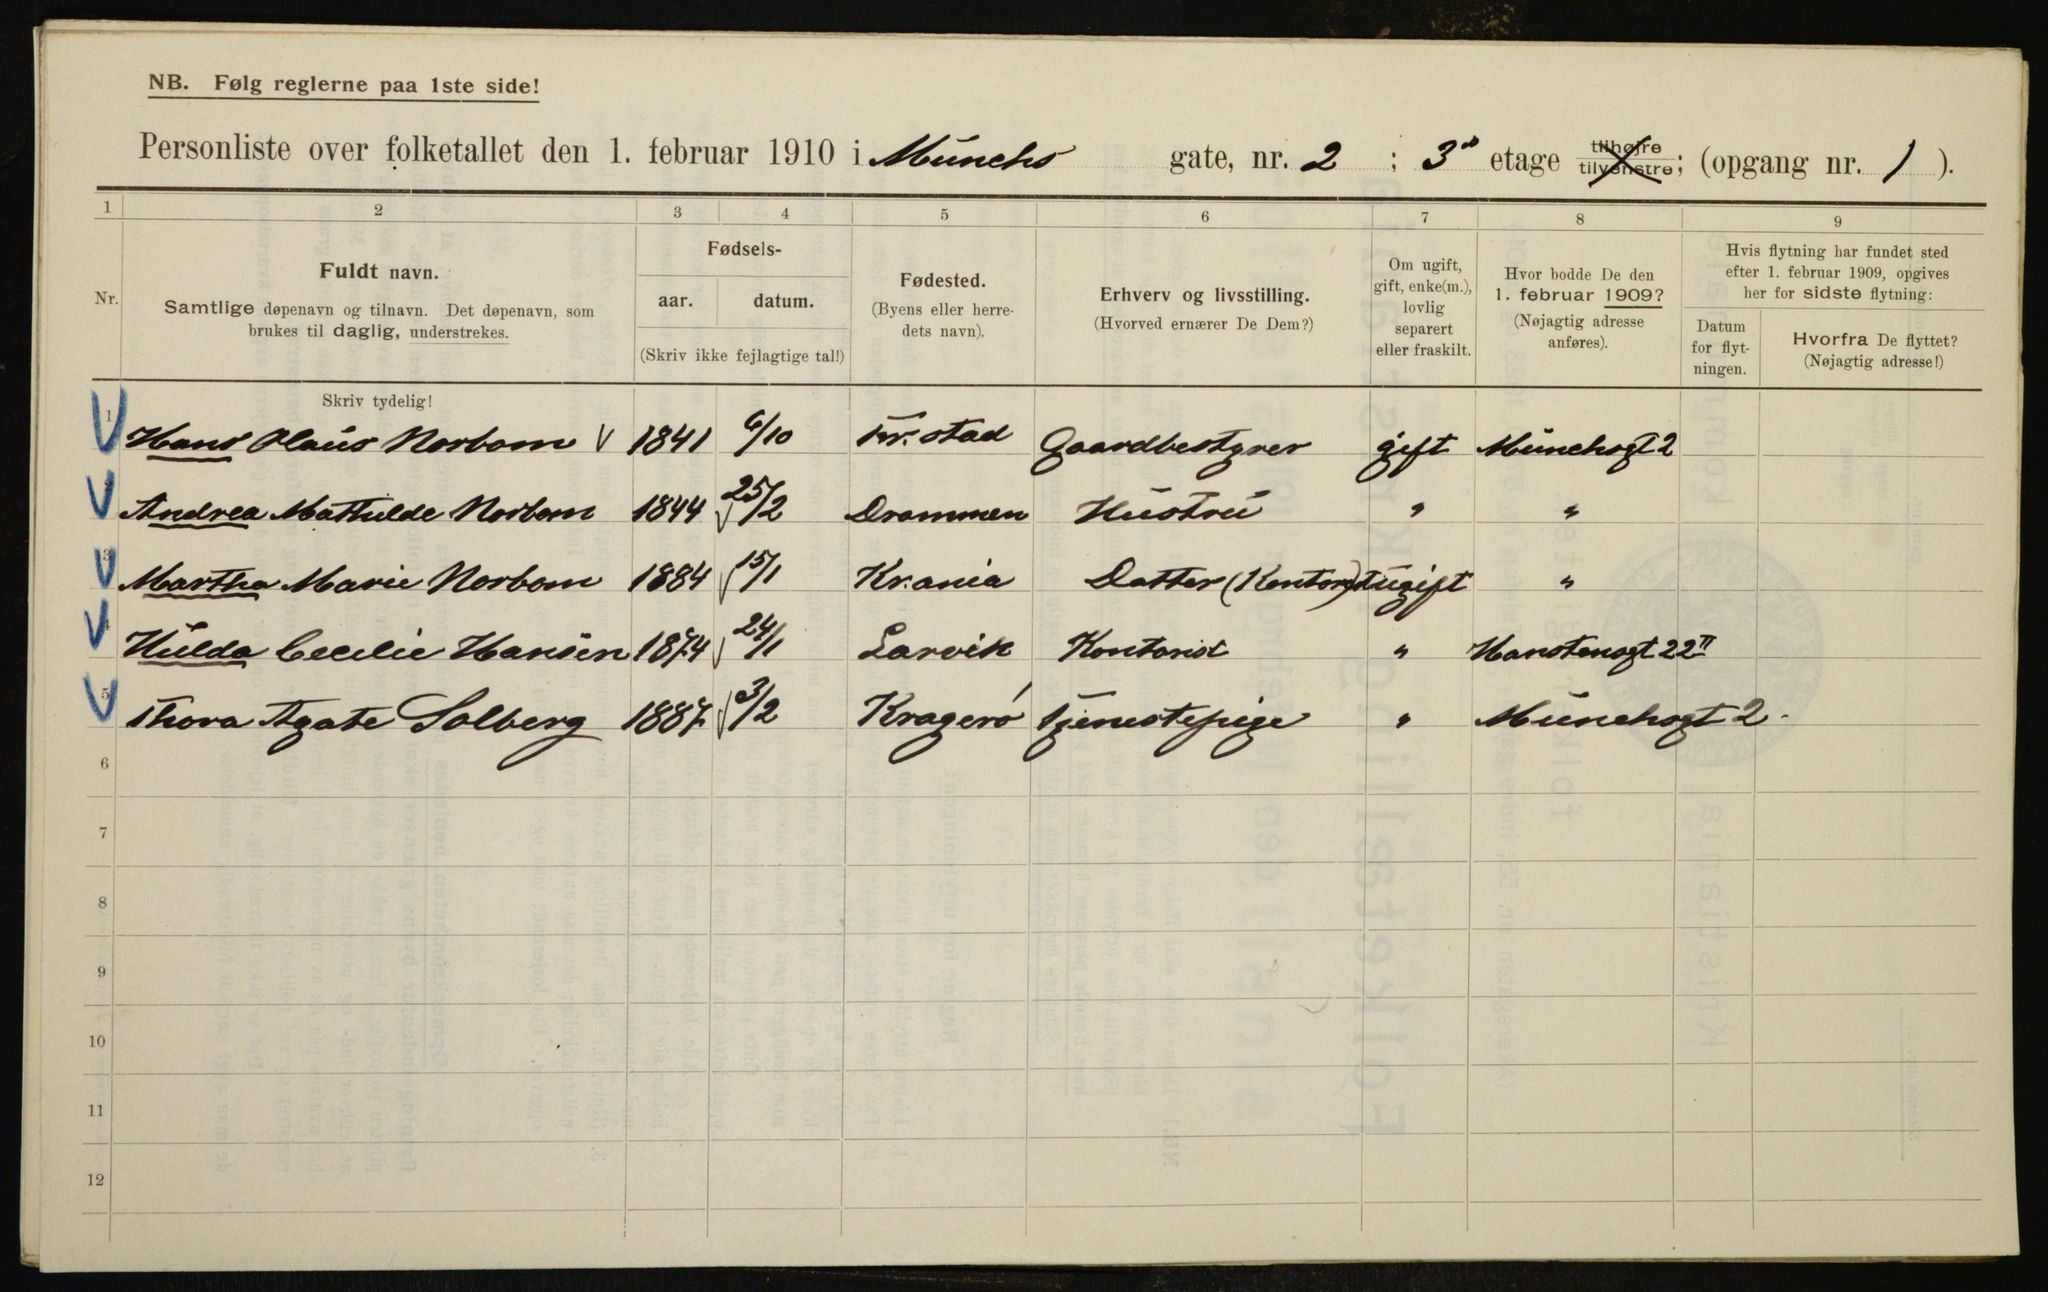 NB. Følg reglerne paa 1ste side!
Personliste over folketallet den 1. februar 1910 i Münchs gate, nr. 2 ; 3 etage tilhøjre tilvenstre; (opgang nr. 1 ).
1 2 3 4 5 6 7 8 9
Nr.
Fuldt navn.
Samtlige døpenavn og tilnavn. Det døpenavn, som
brukes til daglig, understrekes.
Fødsels-
aar. datum.
(Skriv ikke fejlagtige tal!)
Fødested.
(Byens eller herre-
dets navn).
Erhverv og livsstilling.
(Hvorved ernærer De Dem?)
Om ugift,
gift, enke(m.),
lovlig
separert
eller fraskilt.
Hvor bodde De den
1. februar 1909?
(Nøjagtig adresse
anføres).
Hvis flytning har fundet sted
efter 1. februar 1909, opgives
her for sidste flytning:
Datum
for flyt-
ningen.
Hvorfra De flyttet?
(Nøjagtig adresse!)
Skriv tydelig!
1 Hans Olaus Norbom 1841 6/10 Fr.stad Gaardbestyrer gift Münchsgt 2
2 Andrea Mathilde Norbom 1844 25/2 Drammen Hustru " "
3 Martha Marie Norbom 1884 15/1 Kr.ania Datter (Kontorist) ugift "
4 Hulda Cecilie Hansen 1874 24/1 Larvik Kontorist " Hanstensgt 22 II
5 Thora Agate Solberg 1887 3/2 Kragerø Tjenestepige " Münchsgt 2.
6
7
8
9
10
11
12